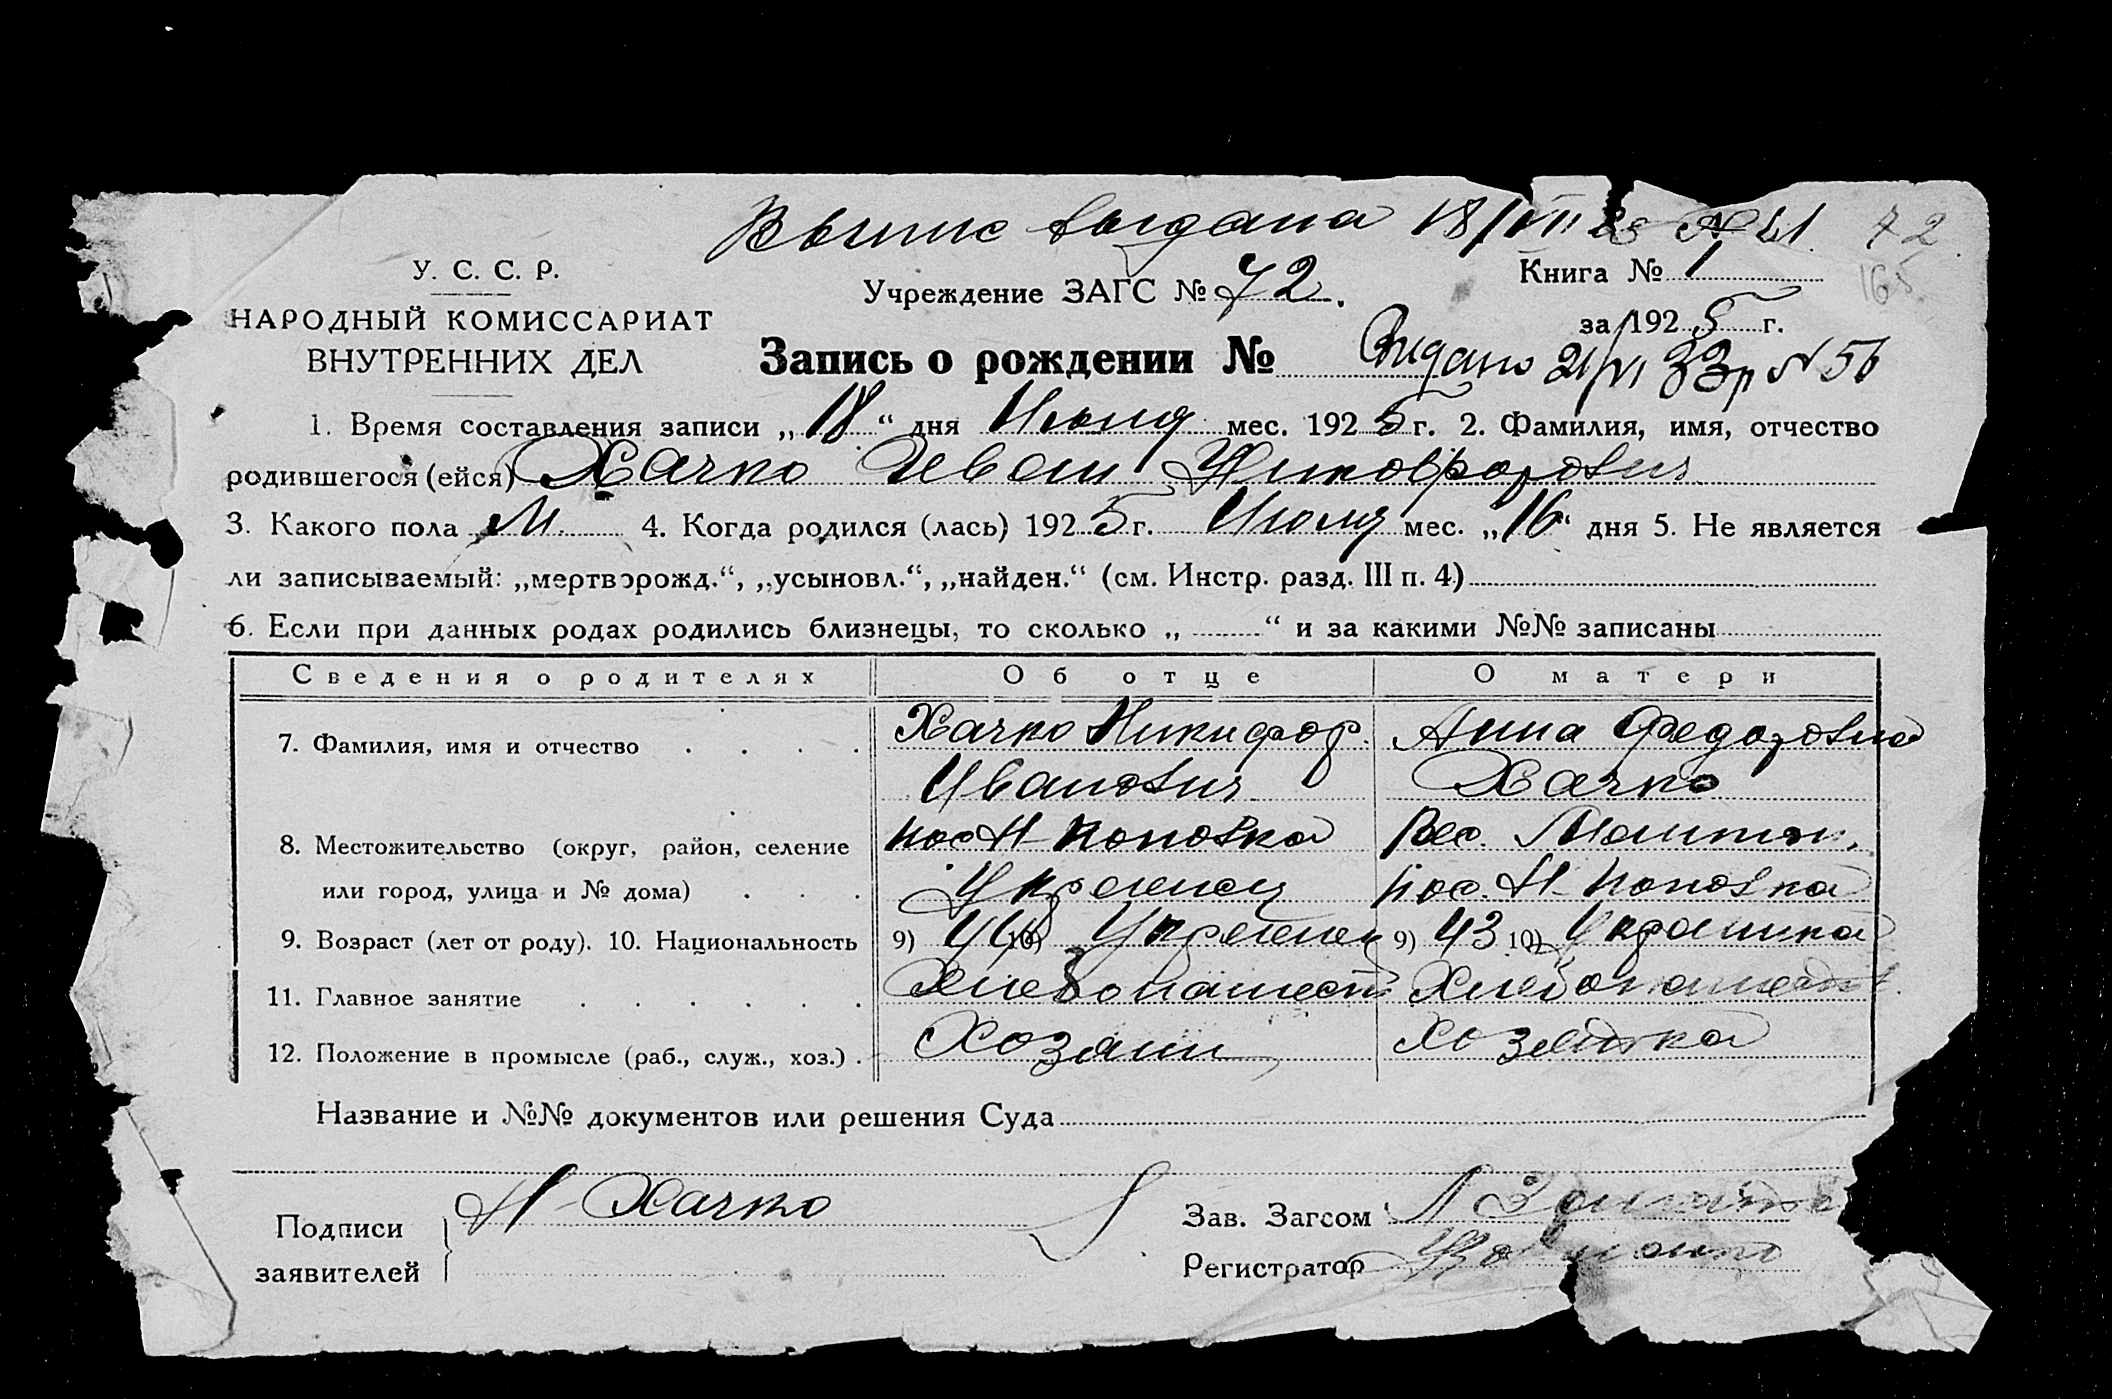 Выпис выдана 18/VII 72
У. С. С. Р.
НАРОДНЫЙ КОМИССАРИАТ
ВНУТРЕННИХ ДЕЛ
Учреждение ЗАГС № 72.
Книга № 1
165
за 1925 г.
Запись о рождении № Видано 21/VI 33р N 56
1. Время составления записи „18“ дня Июля мес. 1925 г. 2. Фамилия, имя, отчество
родившегося (ейся) Хачко Иван Никофорович
3. Какого пола М. 4. Когда родился (лась) 1925 г. Июля мес. „16“ дня 5. Не является
ли записываемый: „мертворожд.“, „усыновл.“, „найден.“ (см. Инстр. разд. III п. 4)
6. Если при данных родах родились близнецы, то сколько „ “ и за какими №№ записаны
Сведения о родителях Об отце О матери
7. Фамилия, имя и отчество Хачко Никифор Анна Федоровна
Иванович Хачко
8. Местожительство (округ, район, селение пос Н-Поповка
или город, улица и № дома) Украенец пос. Н-Поповка
9. Возраст (лет от роду). 10. Национальность 9) 10) Украенец 9) 43 10) Украинка
11. Главное занятие Хлебопашест
12. Положение в промысле (раб., служ., хоз.) Хозаин Хозяйка
Название и №№ документов или решения Суда
Подписи заявителей Н Хачко
Зав. Загсом
Регистратор